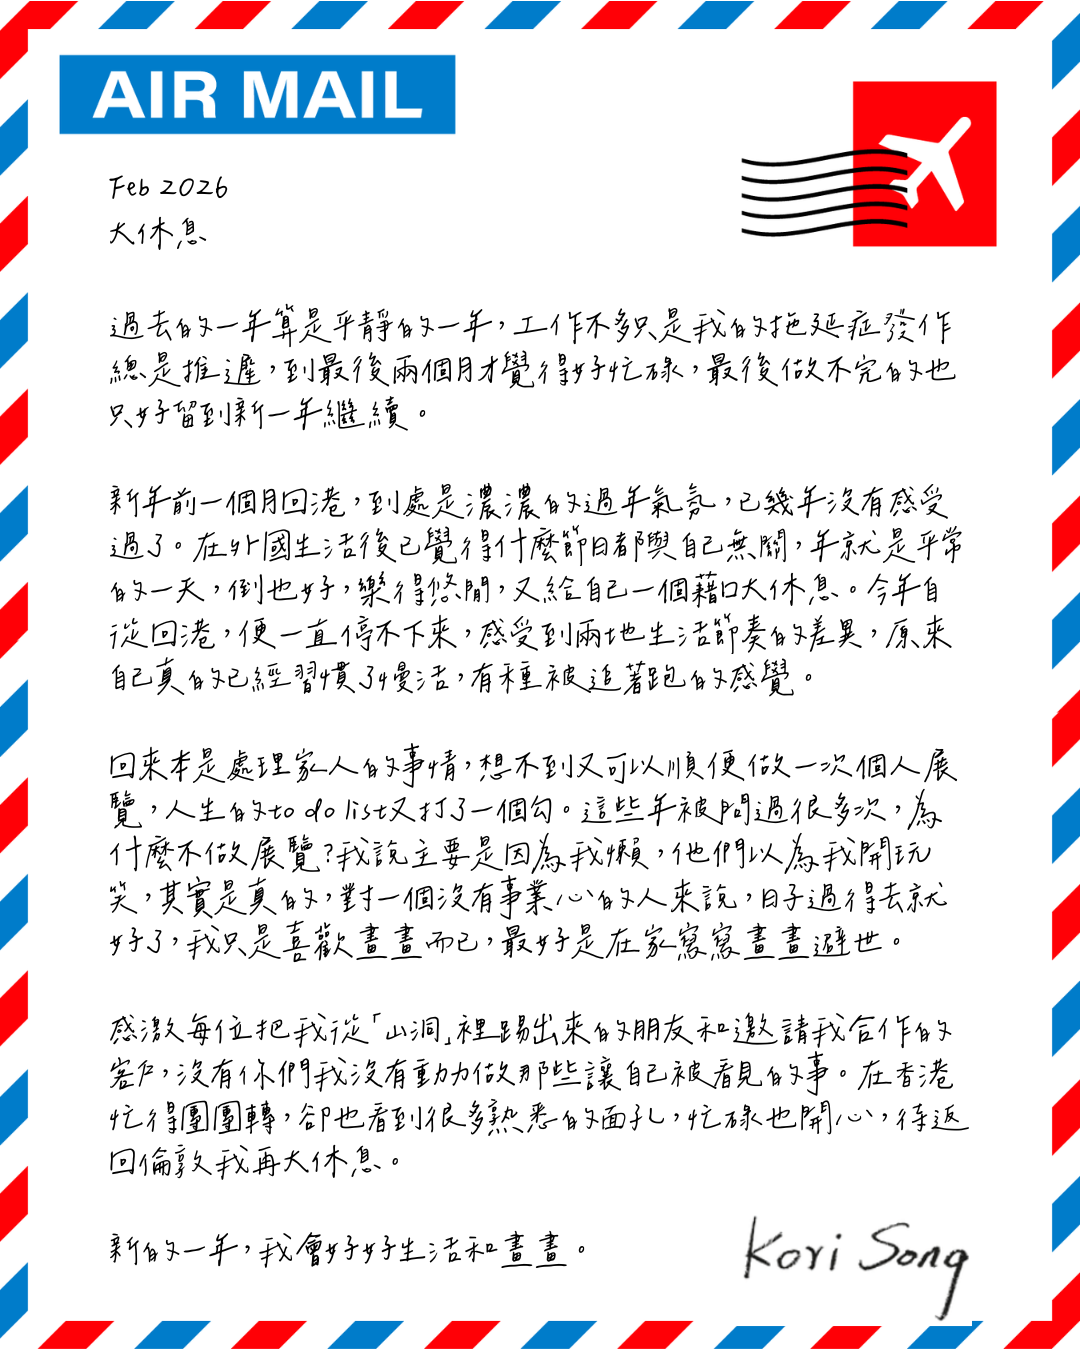 AIR MAIL
Feb 2026
大休息
過去的一年算是平靜的一年，工作不多只是我的拖延症發作
總是推遲，到最後兩個月才覺得好忙碌，最後做不完的也
只好留到新一年繼續。
新年前一個月回港，到處是濃濃的過年氣氛，已幾年沒有感受
過了。在外國生活後已覺得什麼節日都與自己無關，年就是平常
的一天，倒也好，樂得悠閒，又給自己一個藉口大休息。今年自
從回港，便一直停不下來，感受到兩地生活節奏的差異，原來
自己真的已經習慣了慢活，有種被追著跑的感覺。
回來本是處理家人的事情，想不到又可以順便做一次個人展
覽，人生的to do list又打了一個勾。這些年被問過很多次，為
什麼不做展覽?我說主要是因為我懶，他們以為我開玩
笑，其實是真的，對一個沒有事業心的人來說，日子過得去就
好了，我只是喜歡畫畫而已，最好是在家寫寫畫畫避世。
感激每位把我從「山洞」裡踢出來的朋友和邀請我合作的
客戶，沒有你們我沒有動力做那些讓自己被看見的事。在香港
忙得團團轉，卻也看到很多熟悉的面孔，忙碌也開心，待返
回倫敦我再大休息。
新的一年，我會好好生活和畫畫。
Kori Song